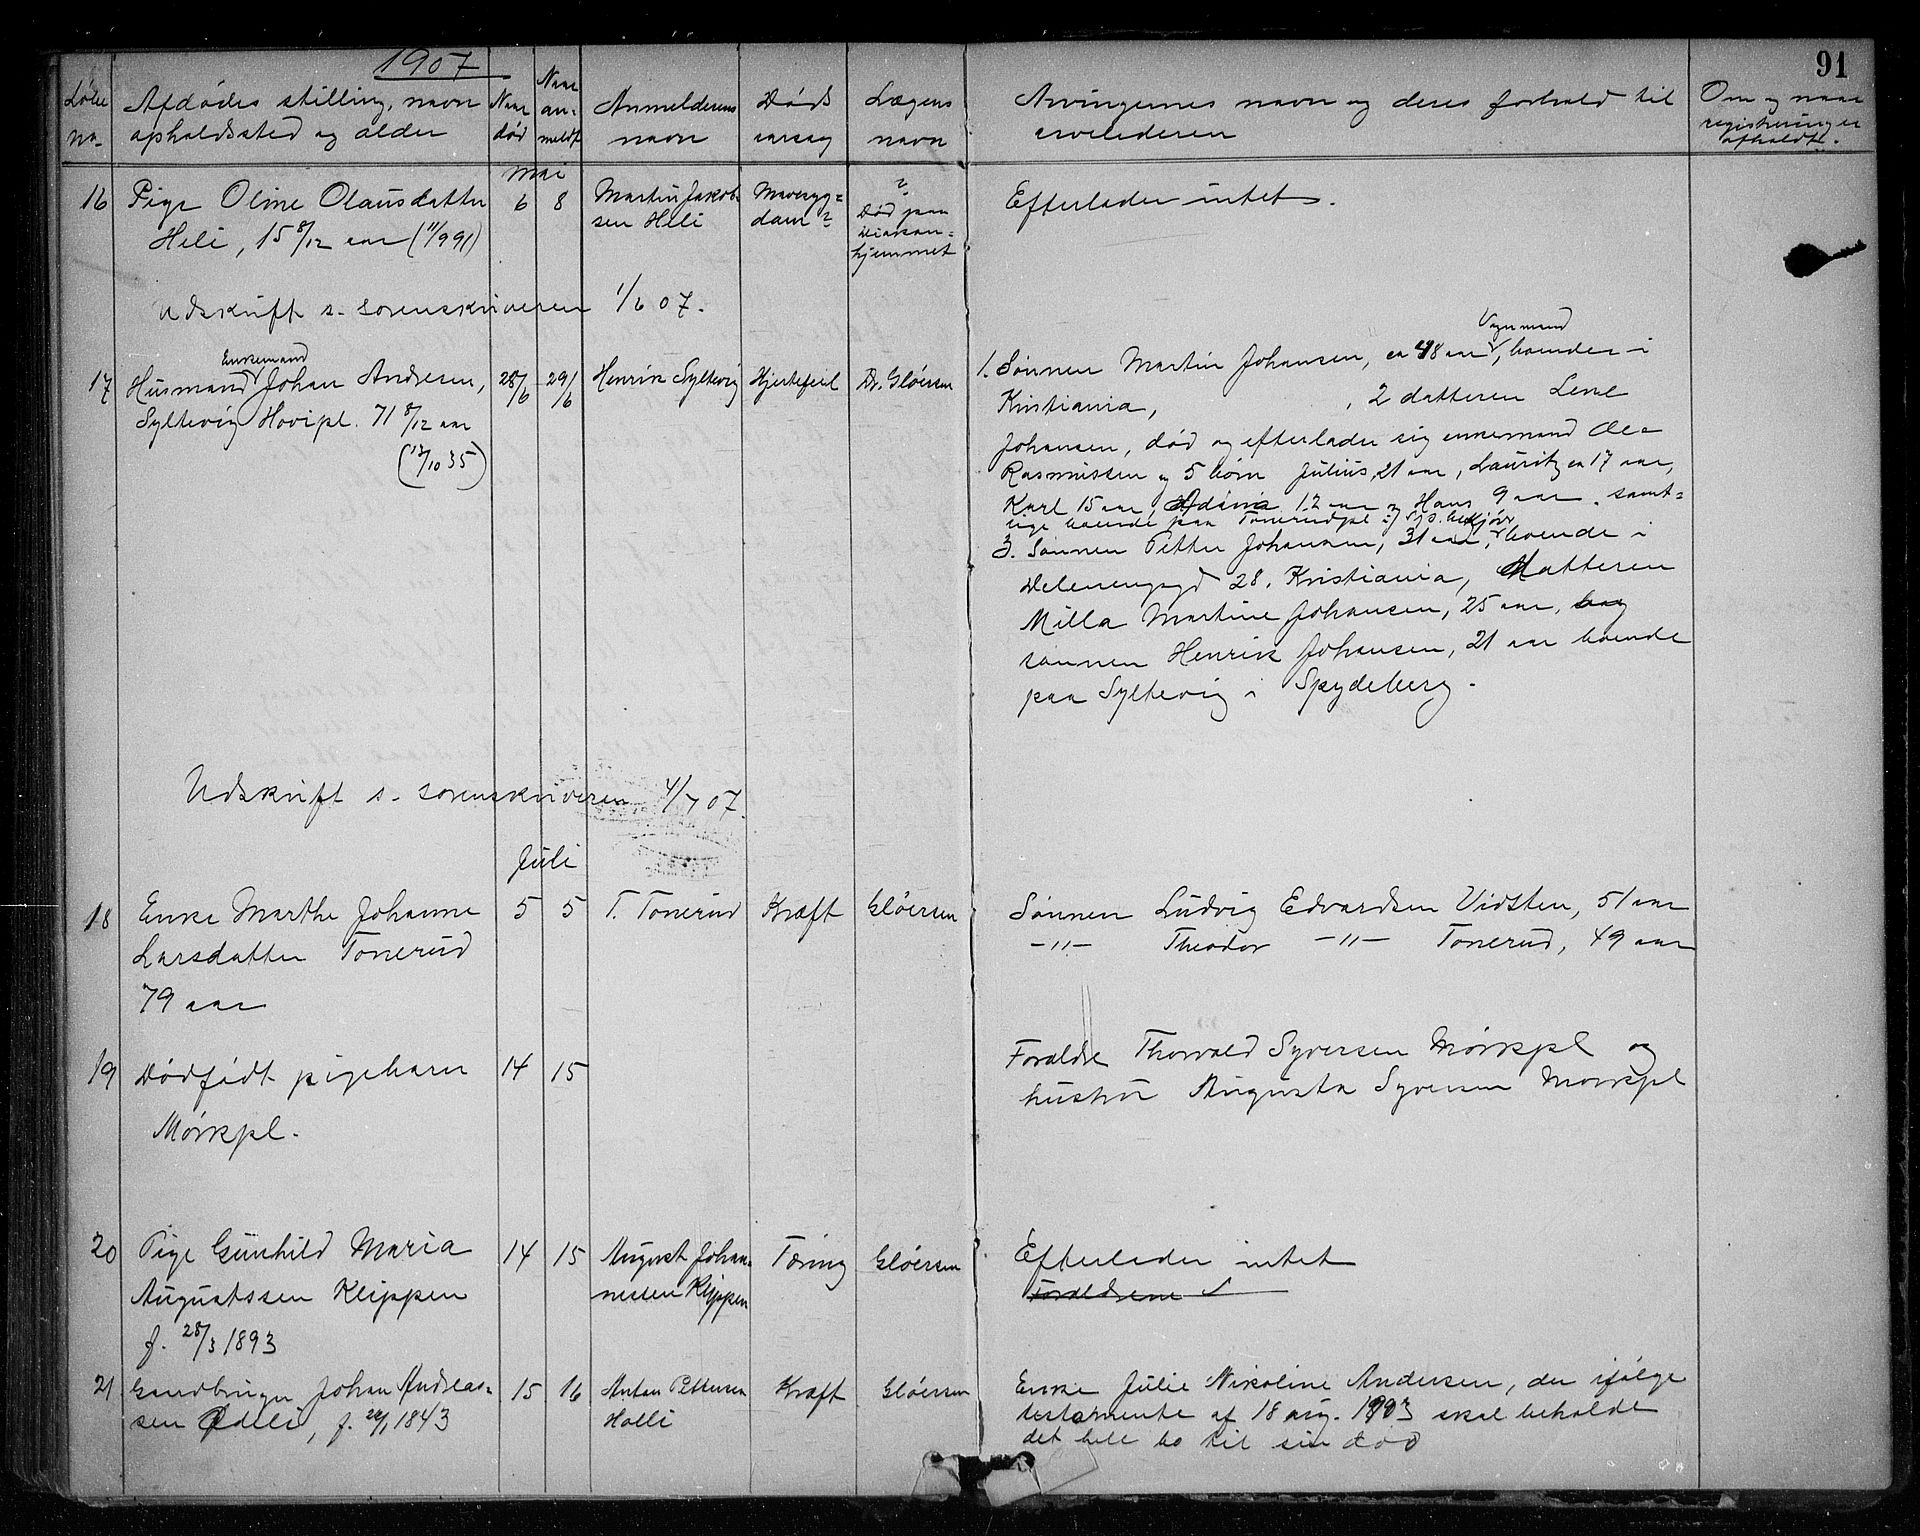 1907
91
Løbe no.
Afdødes stilling, navn opholdssted og alder
Naar død
Naar an-meldt
Anmelderens navn
Døds aarsag
Lægens navn
Arvingernes navn og deres forhold til arveladeren
Om og naar registreringer afholdt.
mai
16 Pige Oline Olausdatter 6 8 Martin Jakob- Mavesyg= ? Efterlader intet.
Heli, 15 8/12 aar (11/9 91) sen Heli dom? Død paa
Diakon=
hjemmet
Udskrift s. sorenskriveren 1/6 07.
Enkemand
17 Husmand Johan Andresen, 28/6 29/6 Henrik Syltevig Hjertefeil Dr. Gløersen
Syltevig Hovipl. 71 8/12 aar
(13/10 35)
Vognmand
1. Sønnen Martin Johansen, ca 48 aar, boende i
Kristiania, , 2 datteren Lene
Johansen, død og efterlader sig enkemand Ole
Rasmussen og 5 børn Julius, 21 aar, Lauritz ca 17 aar,
Karl 15 aar, 12 aar og Hans 9 aar. samt=
lige boende paa Tonerudpl.
3. Sønnen Petter Johansen, 31 aar, boende i
Delenenggd 28. Kristiania, Datteren
Milla Martine Johansen, 25 aar, og
sønnen Henrik Johansen, 21 aar boende
paa Syltevig i Spydeberg.
Udskrift s. sorenskriveren 4/7 07.
Juli
18 Enke Marthe Johanne 5 5 T. Tonerud Kræft Gløersen Sønnen Ludvig Edvardsen Vidsten, 51 aar
Larsdatter Tonerud -"- Theodor -"- Tonerud, 49 aar
79 aar
19 Dødfødt pigebarn 14 15 Forældre Thorvald Syversen Mørkpl og
Mørkpl. hustru Augusta Syversen Mørkpl
20 Pige Gunhild Maria 14 15 August Johan- Tæring Gløersen Efterlader intet
Augustssen Klippen nessen Klippen Forældrene
f. 28/3 1893
21 Gaardbruger Johan Andreas= 15 16 Anton Pettersen Kræft Gløersen Enke Julie Nikoline Andersen, der ifølge
sen Ødeli, f. 1843 Holli testamente af 18 aug. 1903 skal beholde
det hele bo til sin død